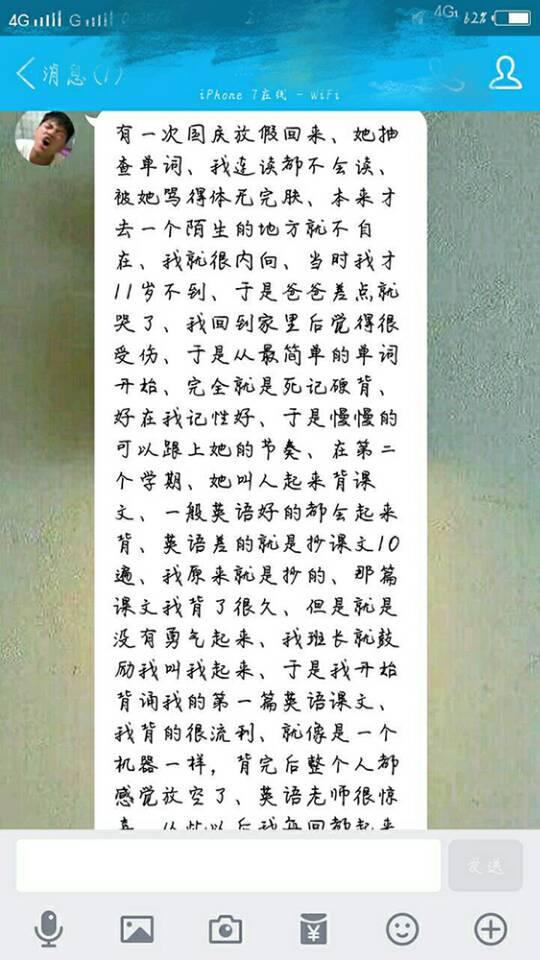 4G G 4G 62%
消息(1)
iPhone 7在线 - WiFi
有一次国庆放假回来、她抽
查单词、我连读都不会读、
被她骂得体无完肤、本来才
去一个陌生的地方就不自
在、我就很内向、当时我才
11岁不到、于是爸爸差点就
哭了、我回到家里后觉得很
受伤、于是从最简单的单词
开始、完全就是死记硬背、
好在我记性好、于是慢慢的
可以跟上她的节奏、在第二
个学期、她叫人起来背课
文、一般英语好的都会起来
背、英语差的就是抄课文10
遍、我原来就是抄的、那篇
课文我背了很久、但是就是
没有勇气起来、我班长就鼓
励我叫我起来、于是我开始
背诵我的第一篇英语课文、
我背的很流利、就像是一个
机器一样，背完后整个人都
感觉放空了、英语老师很惊
喜、从此以后我每回都起来
发送